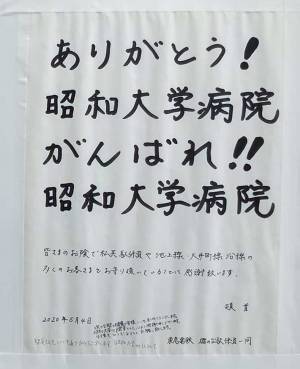 ありがとう!
昭和大学病院
がんばれ!!
昭和大学病院
皆さまのお陰で私共駅係員や池上線 大井町線 沿線の
多くのお客さまをお守り頂いていることに感謝致します。
敬具
2020年5月4日
東急電鉄 旗の台駅係員一同